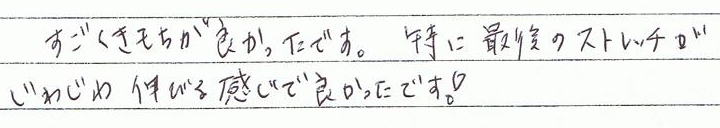 すごくきもちが良かったです。 特に最後のストレッチが
じわじわ伸びる感じで良かったです♡